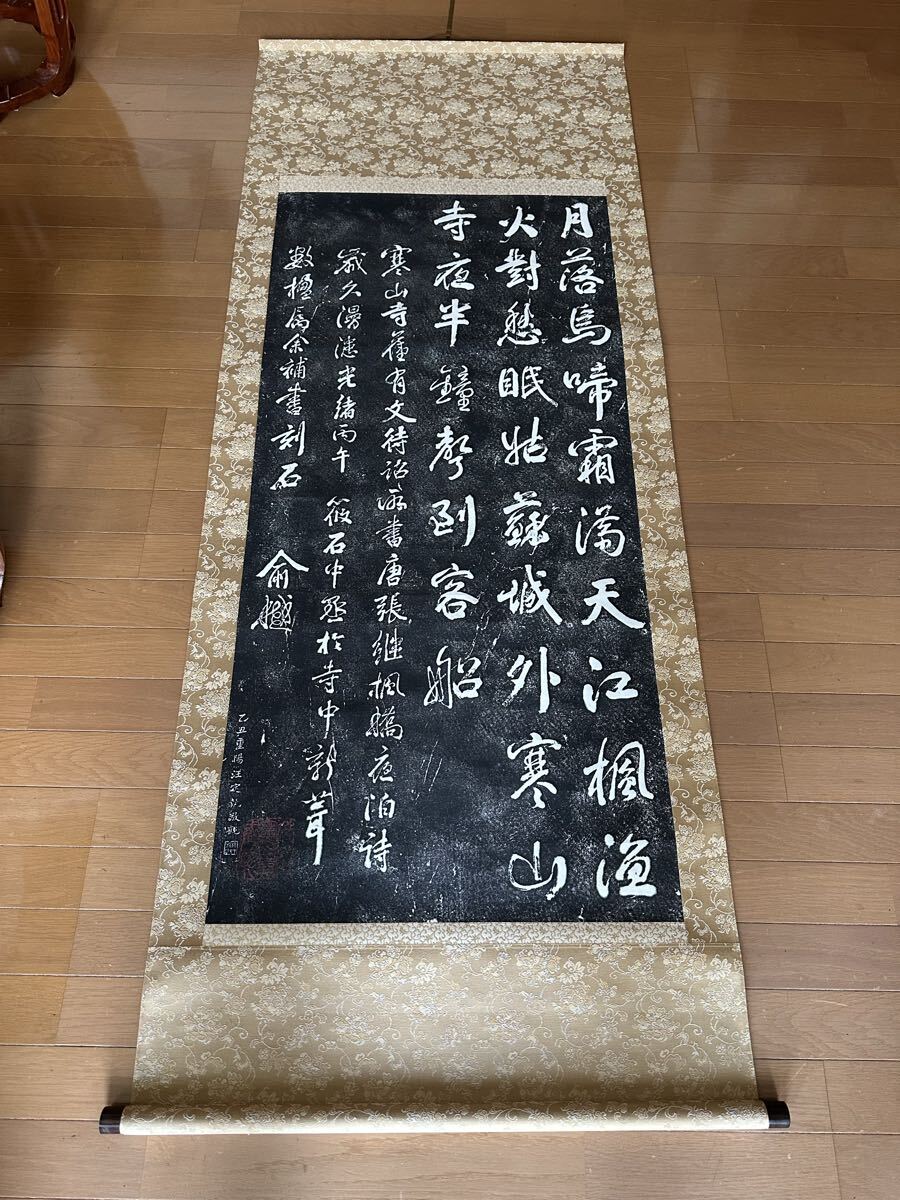 月落烏啼霜滿天江楓漁
火對愁眠姑蘇城外寒山
寺夜半鐘聲到客船
寒山寺舊有文待詔所書唐張繼楓橋夜泊詩
歲久漫漶光緒丙午筱石中丞於寺中新葺
數楹屬余補書刻石
俞樾
乙丑重陽汪定